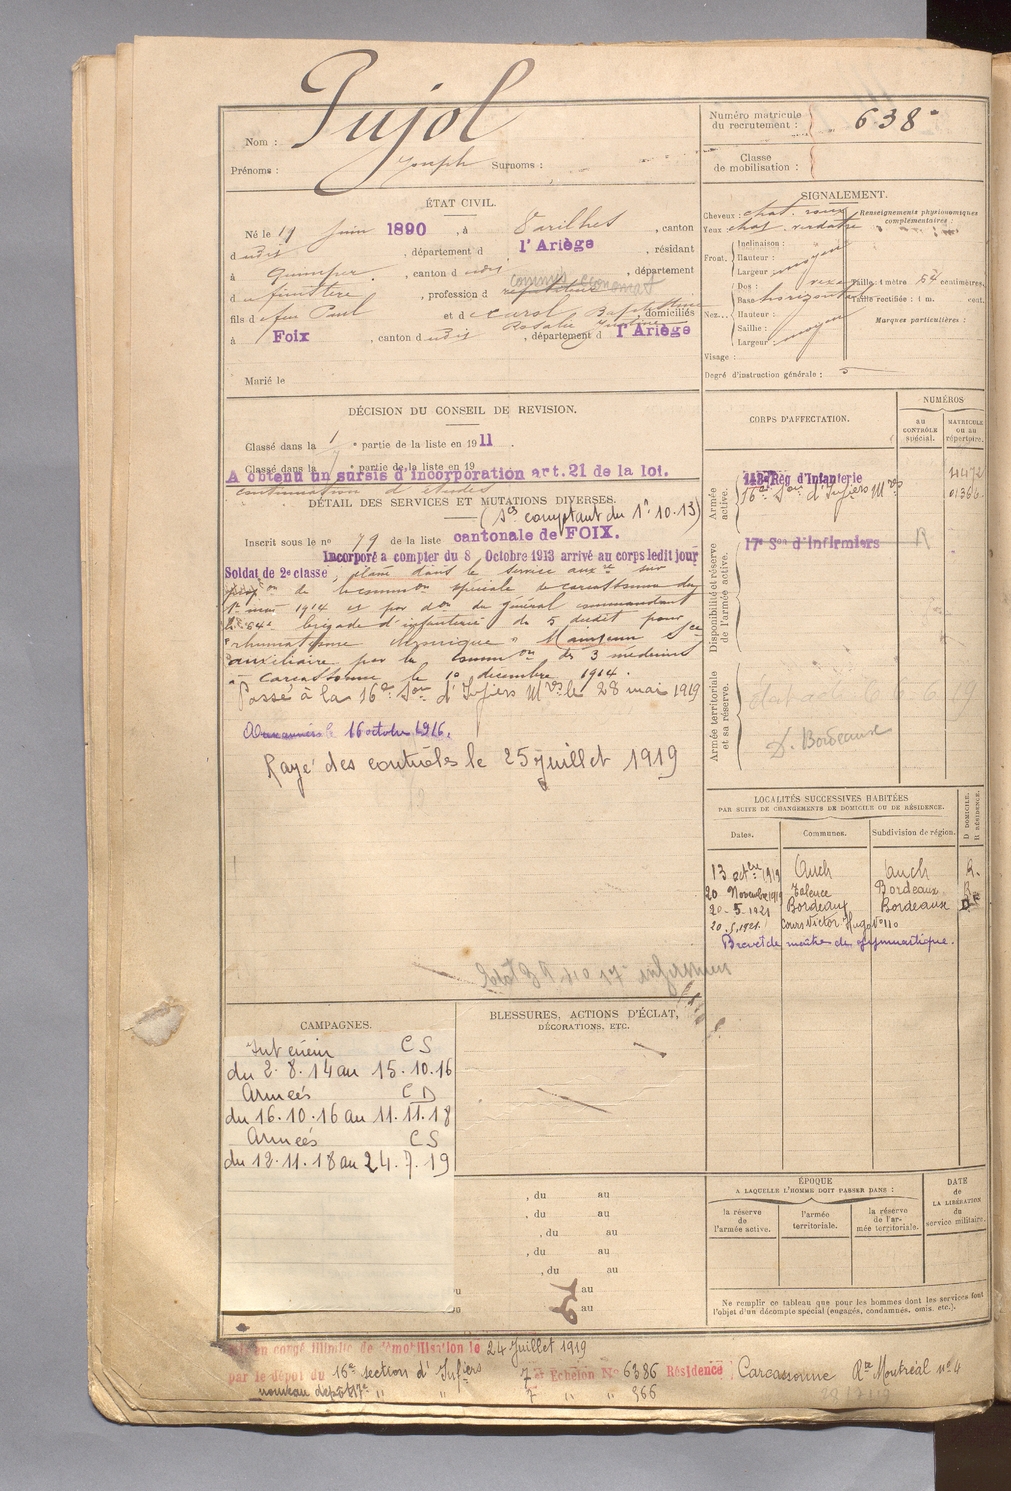 Nom : Pujol
Prénoms : Joseph Surnoms :
Numéro matricule du recrutement : 638
Classe de mobilisation :
ÉTAT CIVIL.
Né le 19 Juin 1890, à Varilhes, canton
dudit, département d l'Ariège, résidant
à Quimper, canton dudit, département
du finistère, profession de répétiteur
commis économat
fils de feu Paul et de Curol Baptistine domiciliés
Rosalie
à Foix, canton dudit, département d l'Ariège
Marié le
SIGNALEMENT.
Cheveux : chat. roux
Yeux chat. verdâtre
Front. Inclinaison :
Hauteur : moyen
Largeur
Nez... Dos : vexe
Base horizontal
Hauteur :
Saillie : moyen
Largeur :
Visage :
Renseignements physionomiques complémentaires :
Taille : 1 mètre 64 centimètres.
Taille rectifiée : 1 m. cent.
Marques particulières :
Degré d'instruction générale : 5
DÉCISION DU CONSEIL DE REVISION.
Classé dans la 1re partie de la liste en 1911.
Classé dans la e partie de la liste en 19
A obtenu un sursis d'incorporation art. 21 de la loi.
continuation d'études
DÉTAIL DES SERVICES ET MUTATIONS DIVERSES.
(Ses comptant du 1er 10.13)
Inscrit sous le no 79 de la liste cantonale de FOIX.
Incorporé à compter du 8 Octobre 1913 arrivé au corps ledit jour
Soldat de 2e classe, placé dans le service auxre sur
propon de la common spéciale de Carcassonne du
1er mai 1914 et par don du général commandant
la 64e brigade d'infanterie du 5 dudit pour
rhumatisme chronique. Maintenu Sce
auxiliaire par la common des 3 médecins
à Carcassonne le 10 décembre 1914.
Passé à la 16e Son d'Infiers Mres le 28 mai 1919
Aux armées le 16 octobre 1916.
Rayé des contrôles le 25 juillet 1919
CORPS D'AFFECTATION.
NUMÉROS
au contrôle spécial.
MATRICULE ou au répertoire.
Armée active.
143e Rég d'Infanterie 4472
16e Son d'Infiers Mres 01364
Disponibilité et réserve de l'armée active.
17e Son d'Infirmiers R
Armée territoriale et sa réserve.
D. Bordeaux
LOCALITÉS SUCCESSIVES HABITÉES
PAR SUITE DE CHANGEMENTS DE DOMICILE OU DE RÉSIDENCE.
Dates. Communes. Subdivision de région. D DOMICILE. R RÉSIDENCE.
13 octbre 1919 Auch Auch R.
20 Novembre 1919 Talence Bordeaux R.
20-5-1921 Bordeaux Bordeaux
20.5.1921. Cours Victor Hugo No 110
Brevet de maître de gymnastique.
CAMPAGNES.
Intérieur CS
du 2.8.14 au 15.10.16
Armées CD
du 16.10.16 au 11.11.18
Armées CS
du 12.11.18 au 24.7.19
BLESSURES, ACTIONS D'ÉCLAT,
DÉCORATIONS, ETC.
, du au
, du au
, du au
, du au
, du au
au
au
ÉPOQUE
A LAQUELLE L'HOMME DOIT PASSER DANS :
la réserve de l'armée active.
l'armée territoriale.
la réserve de l'armée territoriale.
DATE de LA LIBÉRATION du service militaire.
Ne remplir ce tableau que pour les hommes dont les services font
l'objet d'un décompte spécial (engagés, condamnés, omis, etc.).
en congé illimité de démobilisation le 24 Juillet 1919
par le dépôt du 16e section d'Infiers 7e Echelon No 6386 Résidence Carcassonne Rte Montréal no 4
nouveau dépôt 17e " " 7 " " 366